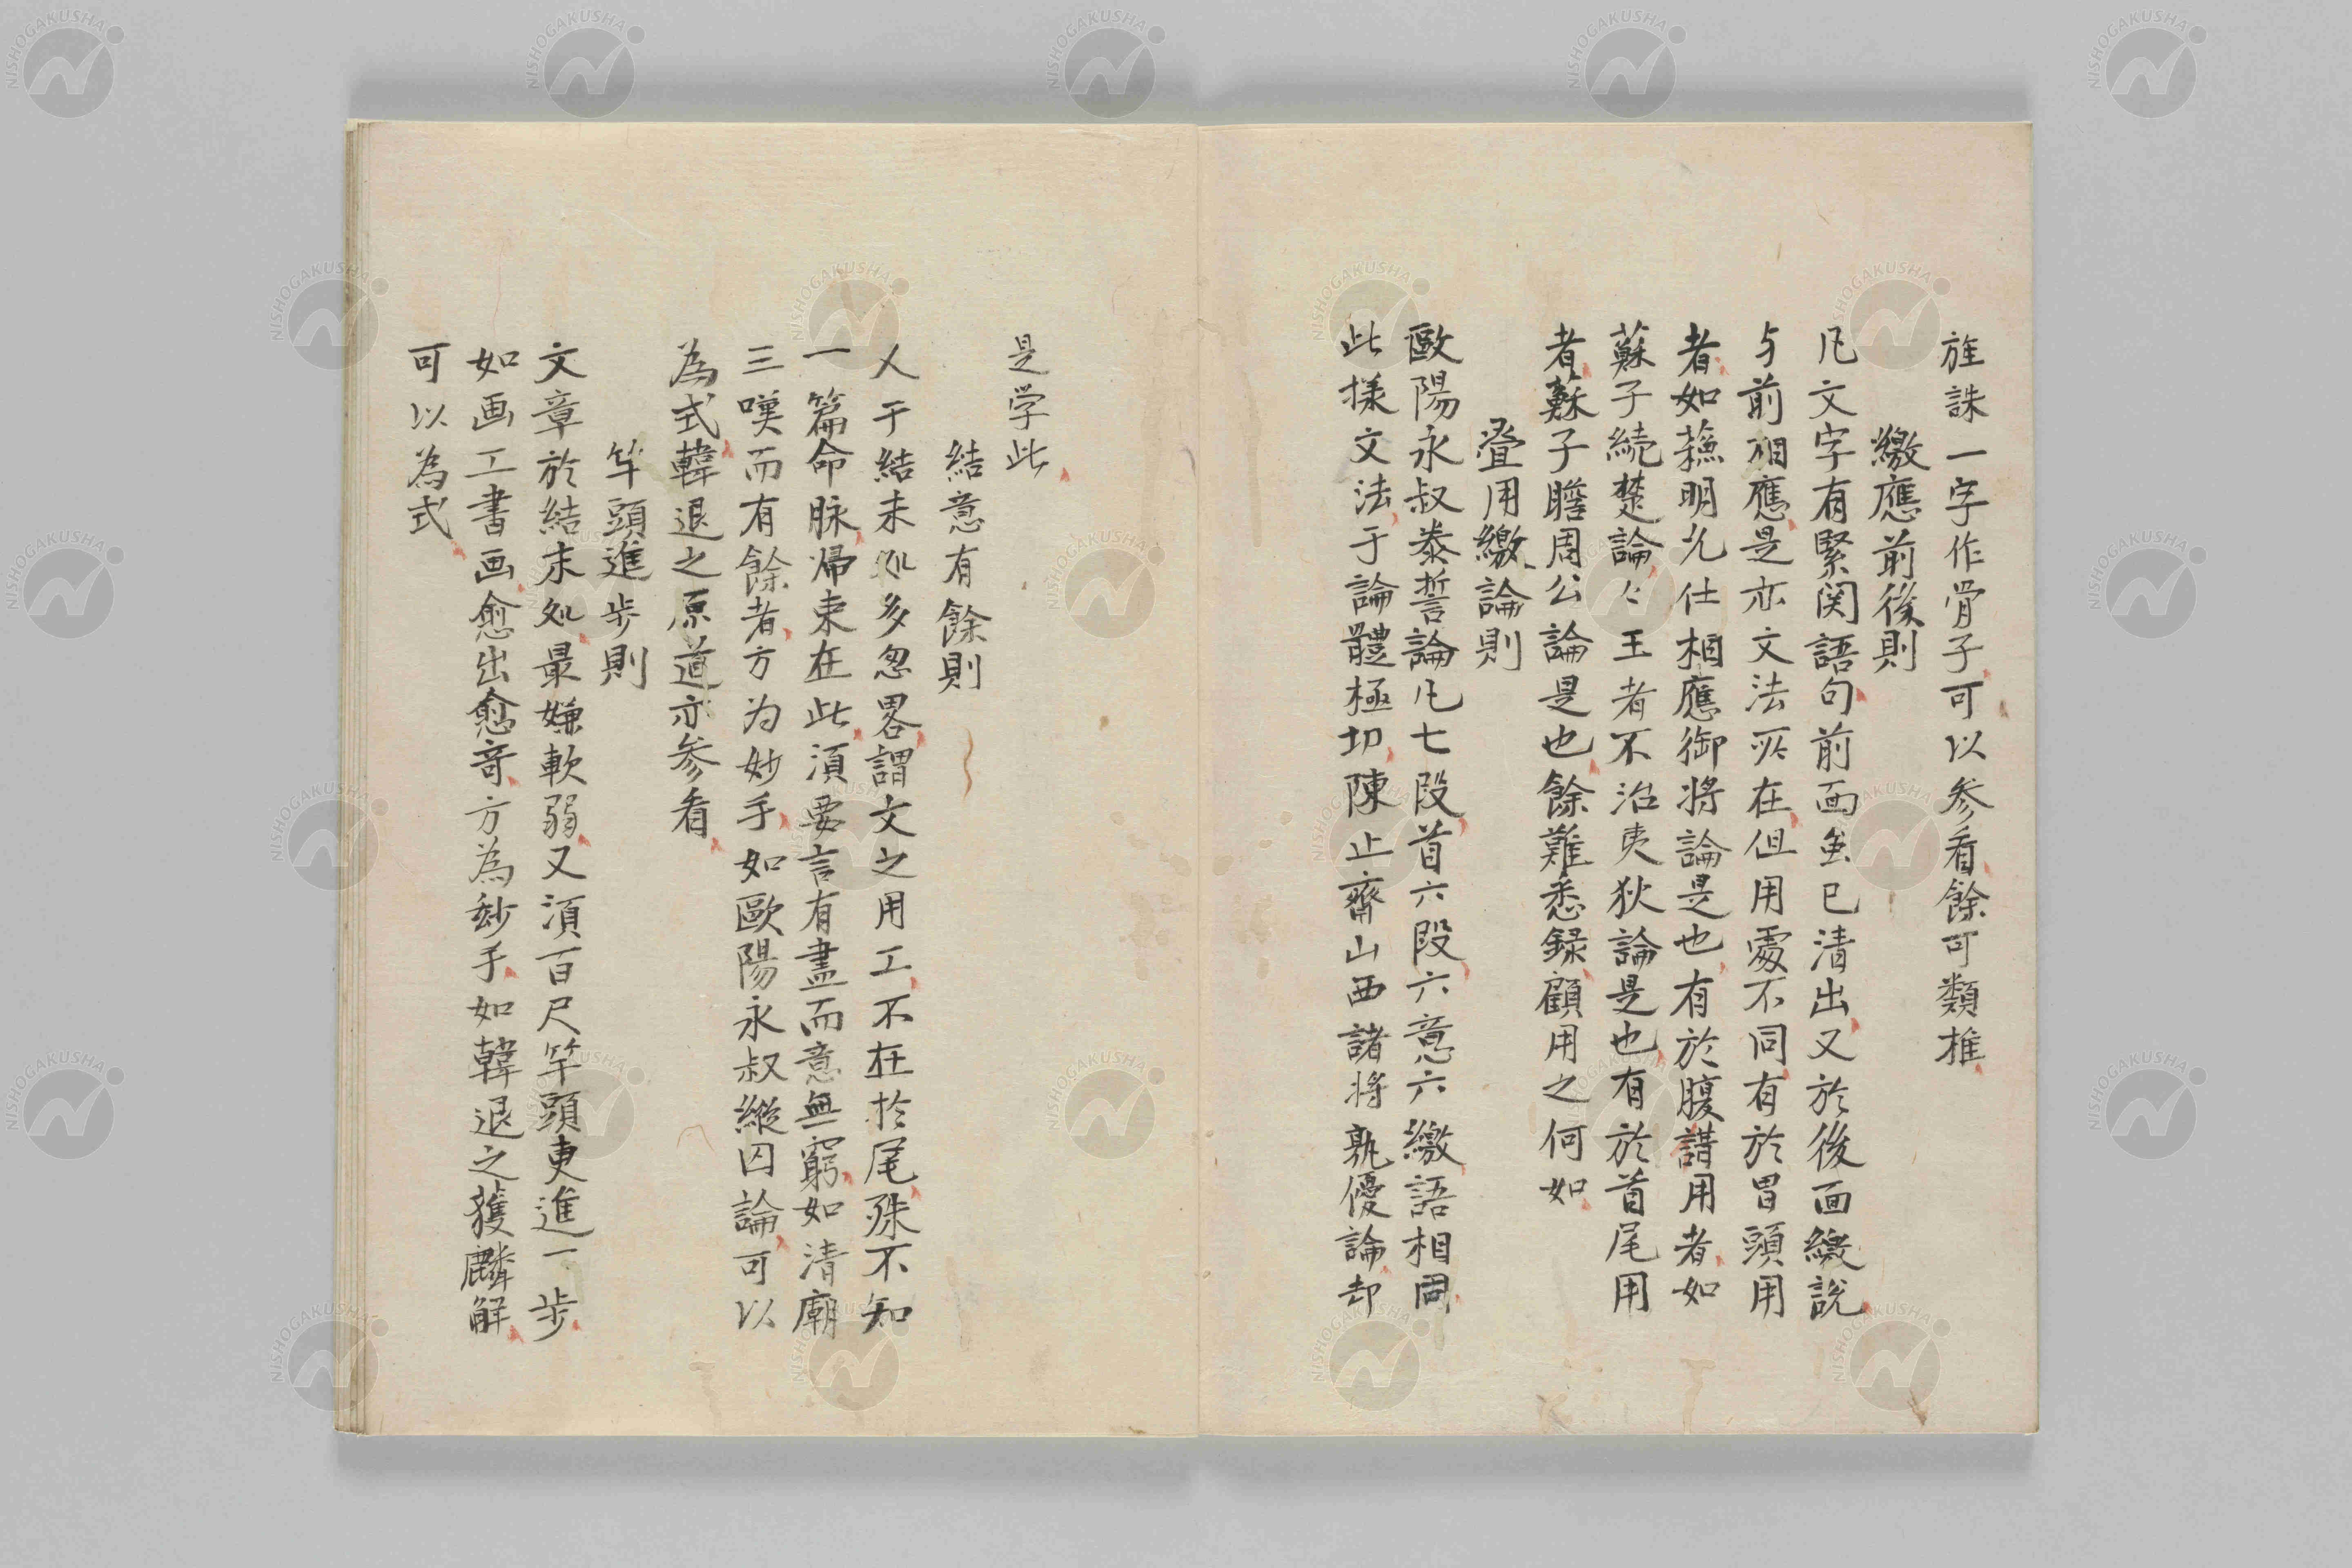 旌誅一字作骨子可以参看餘可類推
繳應前後則
凡文字有緊関語句前面虽已清出又於後面繳説
与前相應是亦文法所在但用處不同有於冒頭用
者如蘓明允仕相應御将論是也有於腹講用者如
蘇子続楚論〻王者不治夷狄論是也有於首尾用
者蘇子瞻周公論是也餘難悉録顧用之何如
疊用繳論則
歐陽永叔泰誓論凡七段首六段六意六繳語相同
此様文法于論體極切陳止齋山西諸将孰優論却
是学此
結意有餘則
人于結末処多忽畧謂文之用工不在於尾殊不知
一篇命脉帰束在此須要言有盡而意無窮如清廟
三嘆而有餘者方为妙手如歐陽永叔縦囚論可以
為式韓退之原道亦参看
竿頭進歩則
文章於結末処最嫌軟弱又須百尺竿頭更進一歩
如画工書画愈出愈竒方為玅手如韓退之獲麟解
可以為式
NISHOGAKUSHA